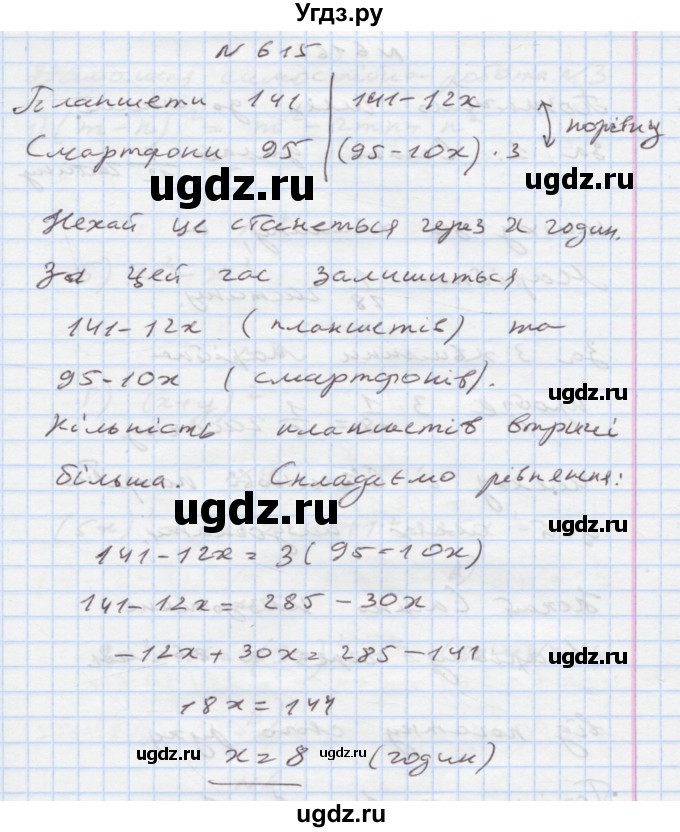 Угдз.ру
N 615
Планшети 141 | 141-12x
Смартфони 95 | (95-10x) · 3
порівну
ugdz.ru
ugdz.ru
Нехай це станеться через x годин.
За цей час залишиться
141-12x (планшетів) та
95-10x (смартфонів).
ugdz.ru
Кількість планшетів втричі
більша. Складаємо рівняння:
ugdz.ru
141-12x = 3(95-10x)
141-12x = 285-30x
-12x+30x = 285-141
ugdz.ru
18x = 144
x = 8 (годин)
ugdz.ru
ugdz.ru
ugdz.ru
ugdz.ru